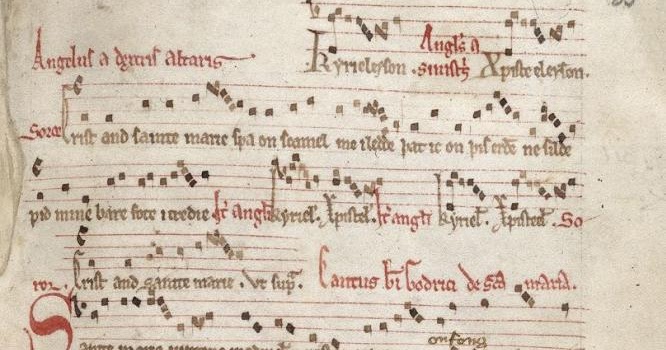 Angelus a dextris altaris Kyrieleyson Angl's a sinistris Xpisteeleyson.
Soror Crist and sainte marie swa on scamel me iledde þat ic on þis erde ne silde
wid mine bare fote itredie It' angli kyriel. Xpistel. It' angli kyriel. Xpistel. So
ror. Crist and sainte marie . vt sup'. Cantus bi' Godrici de sca maria.
Sainte
on fong